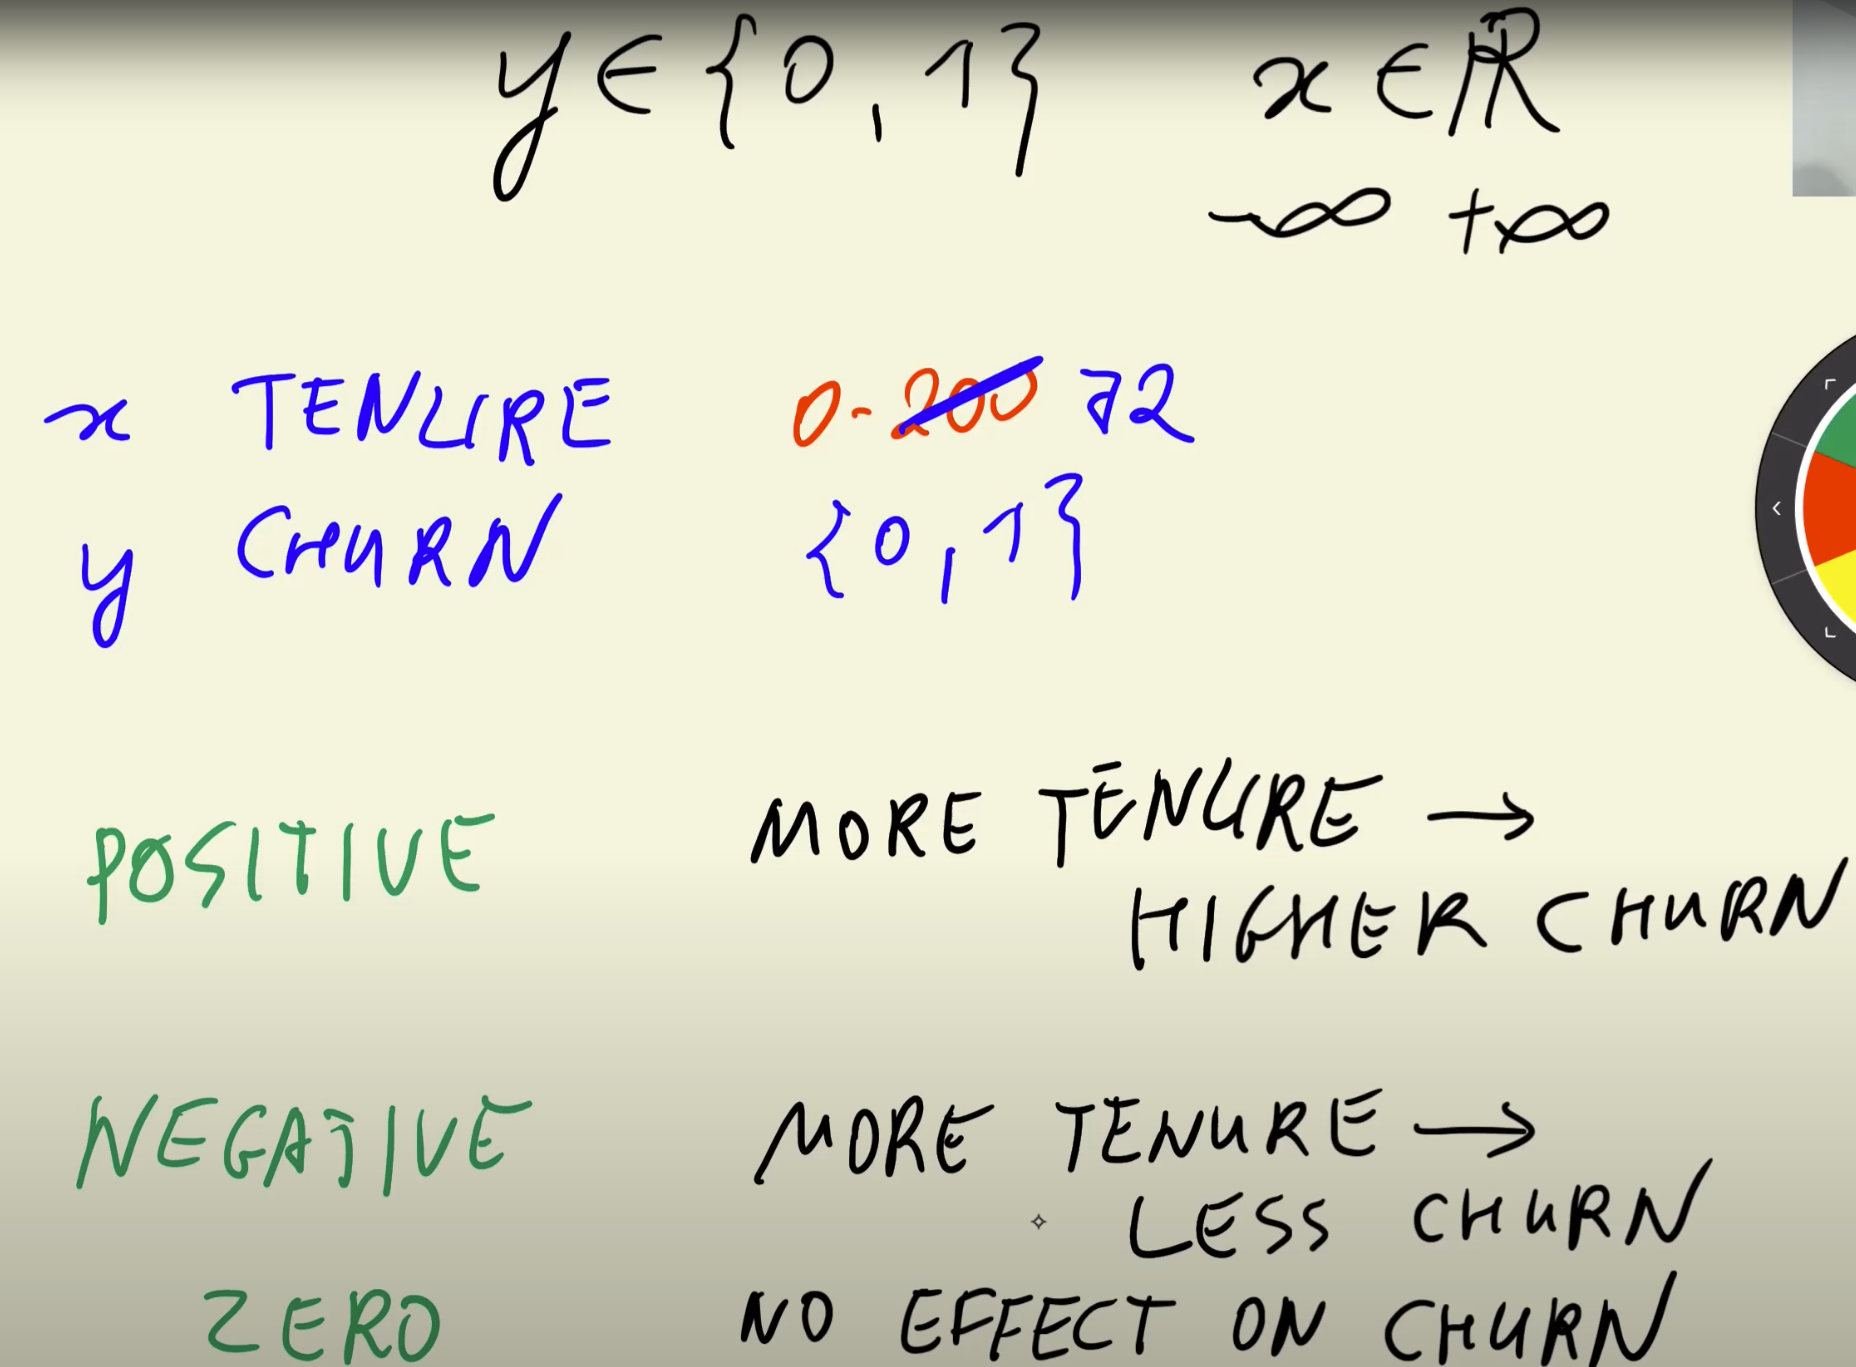 y ∈ {0, 1} x ∈ ℝ
-∞ +∞
x TENURE 0-200 72
y CHURN {0, 1}
POSITIVE MORE TENURE →
HIGHER CHURN
NEGATIVE MORE TENURE →
LESS CHURN
ZERO NO EFFECT ON CHURN